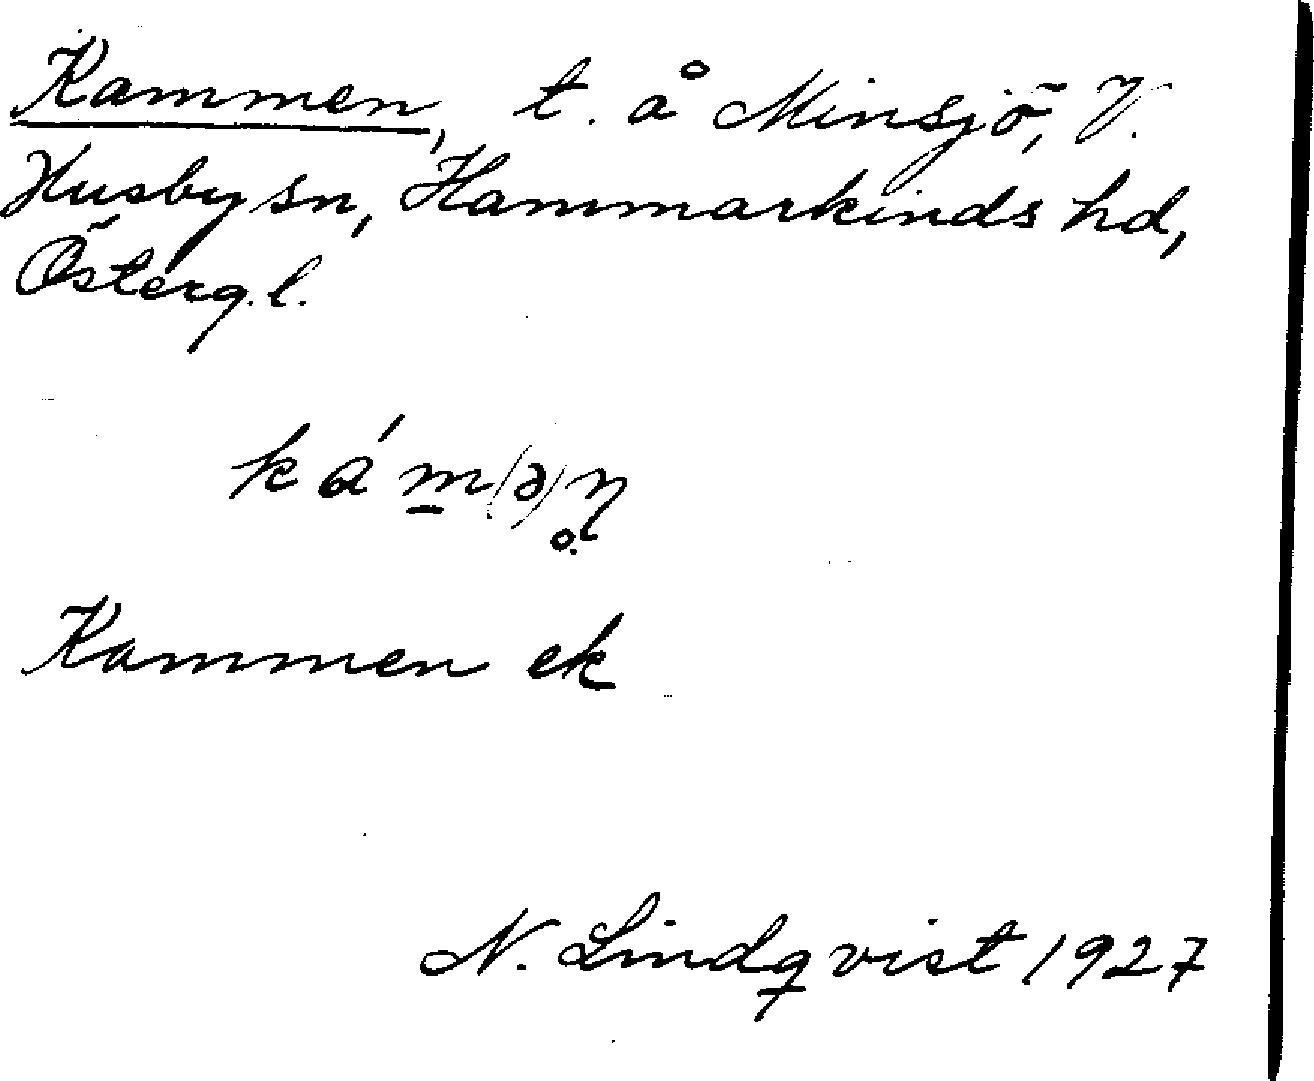 Kammen, t. å Minsjö, V.
Husby sn, Hammarkinds hd,
Österg.l.
ká m̲(ə)n̥
Kammen ek
N. Lindqvist 1927